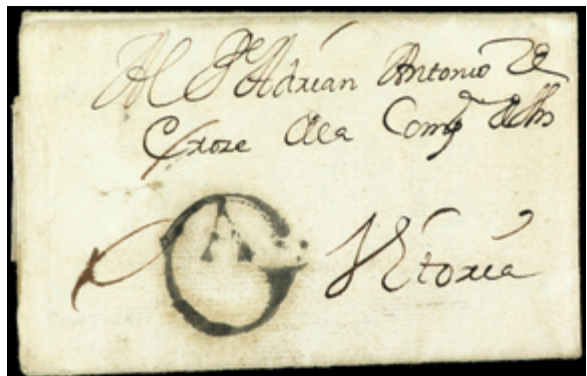 Al P.e Adrian Antonio de
Croze de la Comp.a de Jhs
A
Vitoria